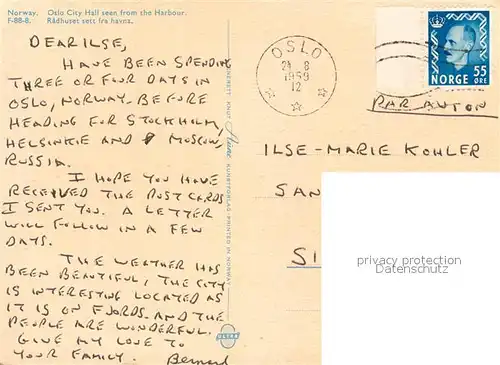 Norway. Oslo City Hall seen from the Harbour.
F-88-8. Rådhuset sett fra havna.
DEAR ILSE,
HAVE BEEN SPENDING
THREE OR FOUR DAYS IN
OSLO, NORWAY. BEFORE
HEADING FOR STOCKHOLM,
HELSINKIE AND MOSCOW,
RUSSIA.
I HOPE YOU HAVE
RECEIVED THE POST CARDS
I SENT YOU. A LETTER
WILL FOLLOW IN A FEW
DAYS.
THE WEATHER HAS
BEEN BEAUTIFUL, THE CITY
IS INTERESTING LOCATED AS
IT IS ON FJORDS. AND THE
PEOPLE ARE WONDERFUL.
GIVE MY LOVE TO
YOUR FAMILY. Bernard
ENERETT KNUT KUNSTFORLAG - PRINTED IN NORWAY
ULTRA
OSLO
21 8
1959
12
NORGE 55
ØRE
PAR AVION
ILSE-MARIE KOHLER
SAN
SI
privacy protection
Datenschutz